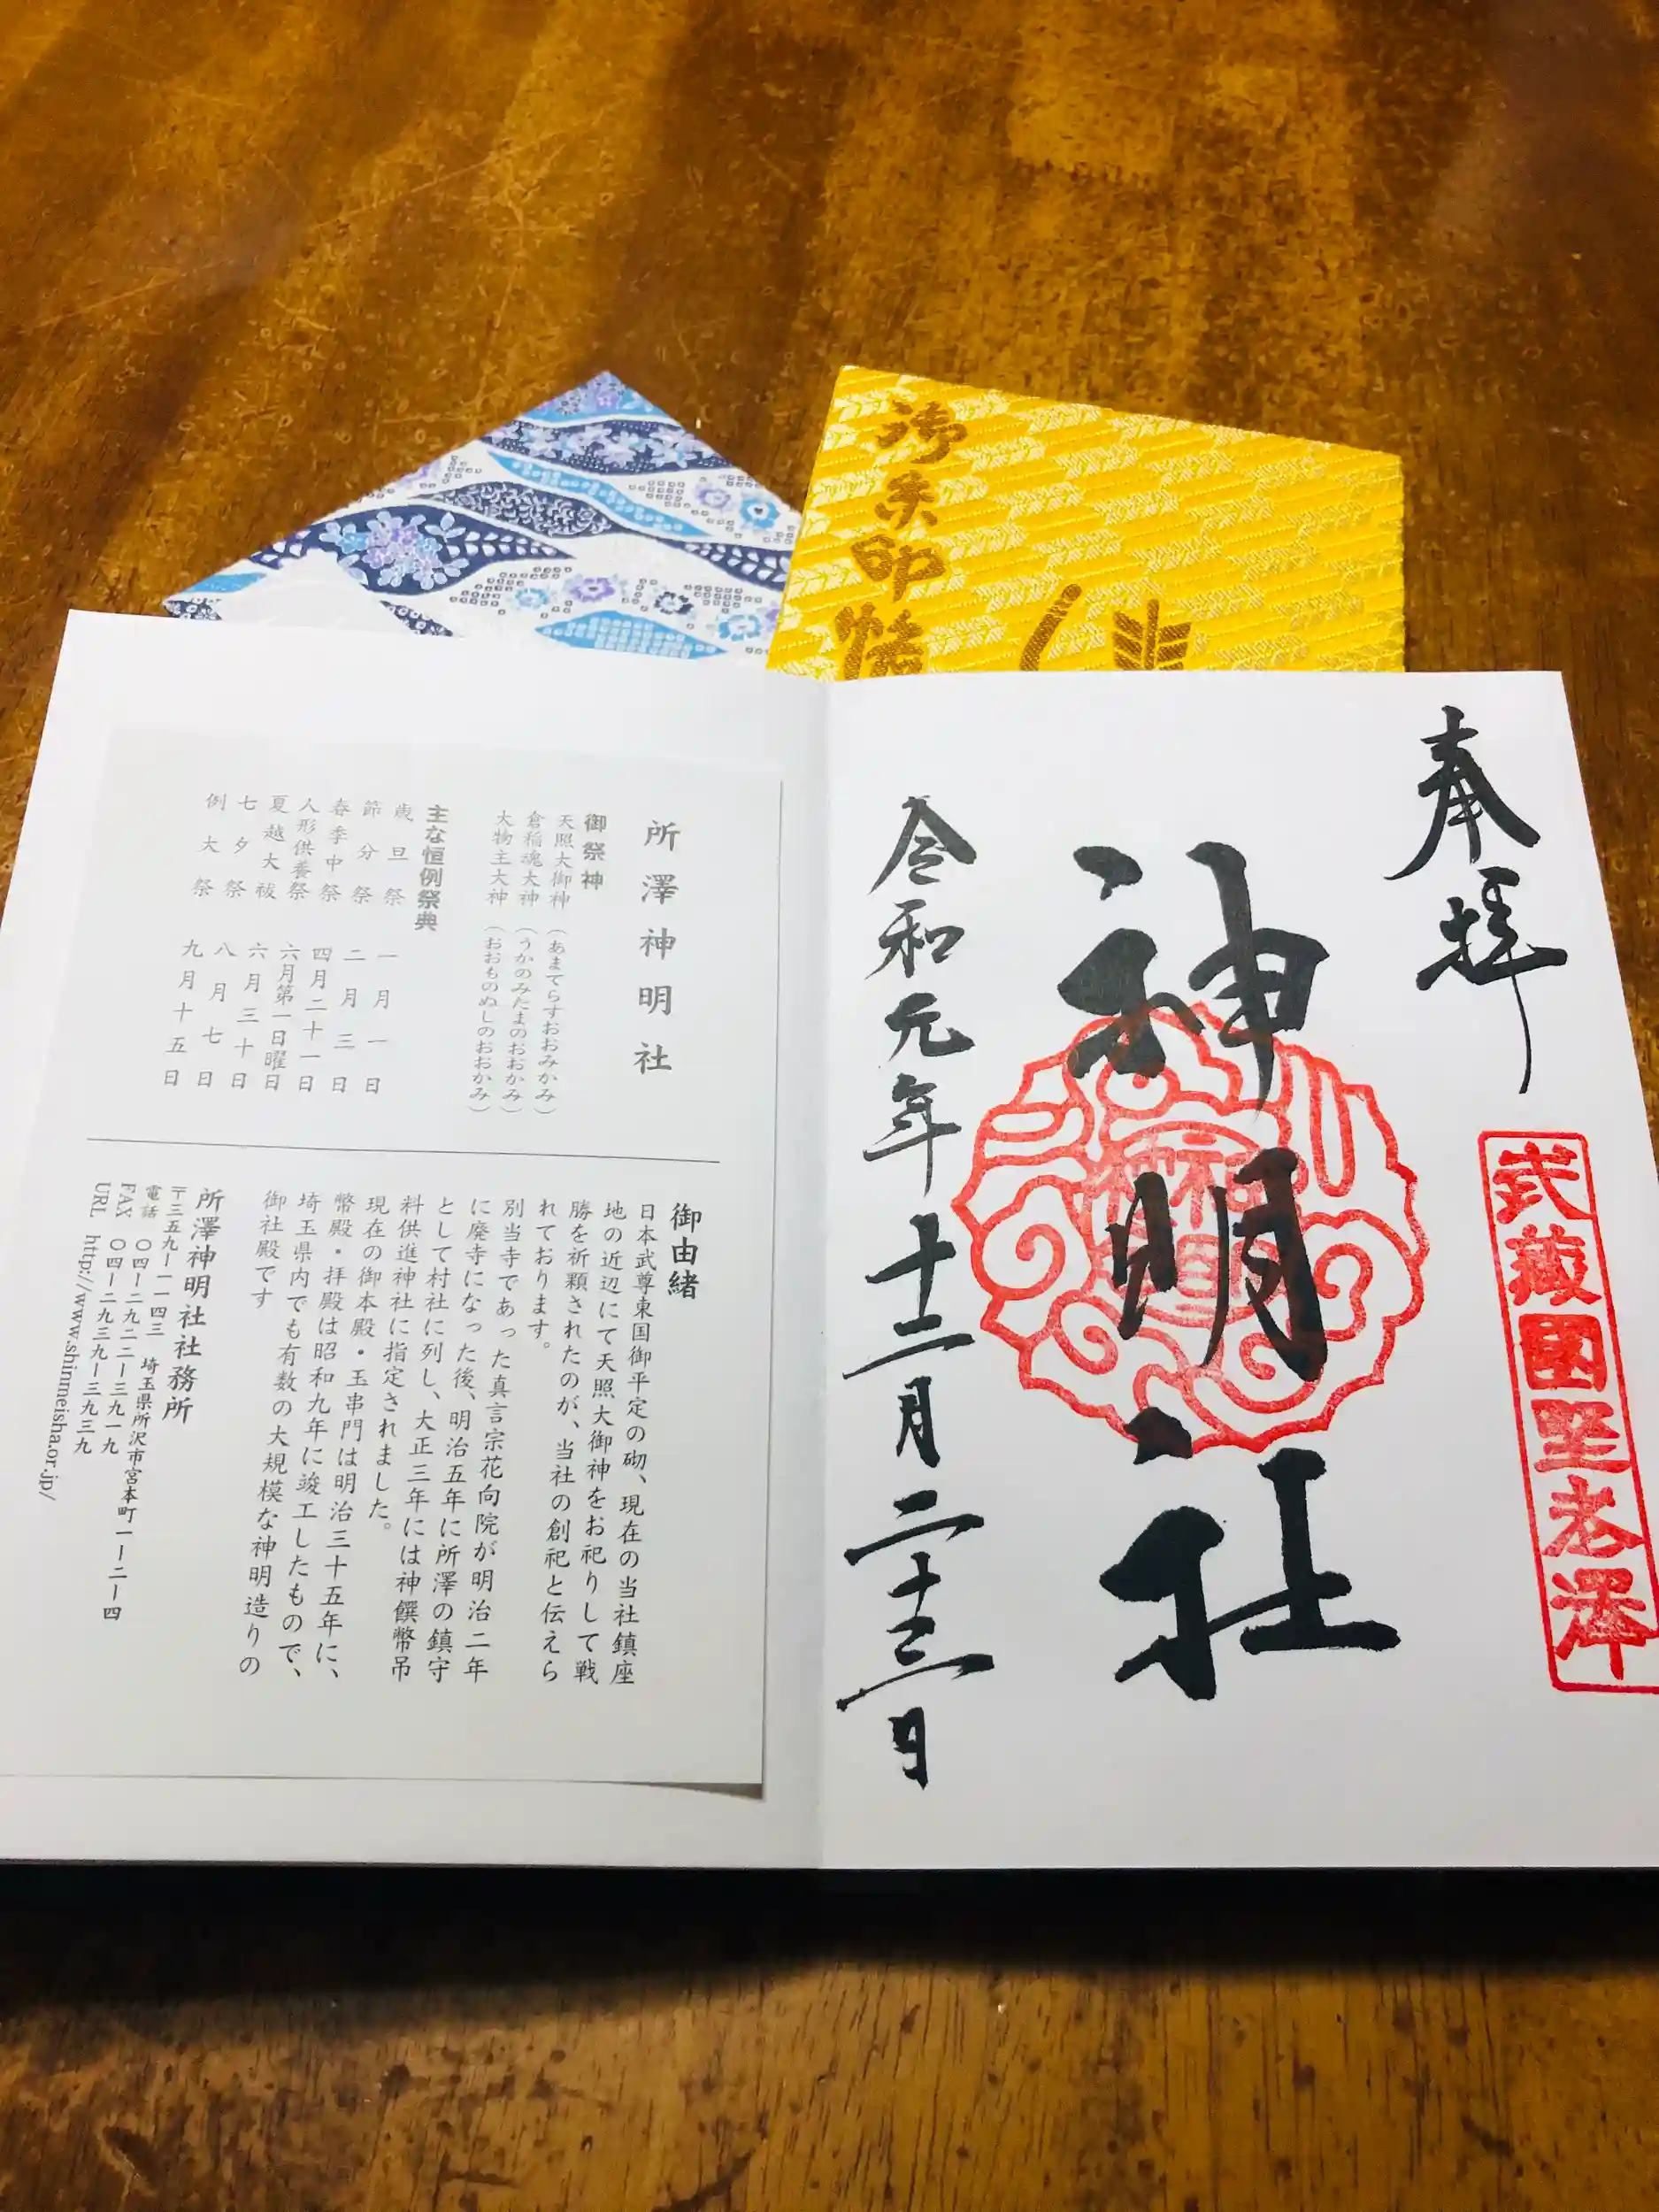 御朱印帖
奉拝
武蔵國野老澤
神明社
令和元年十二月二十三日
所澤神明社
御祭神
天照大御神（あまてらすおおみかみ）
倉稲魂大神（うかのみたまのおおかみ）
大物主大神（おおものぬしのおおかみ）
主な恒例祭典
歳旦祭 一月一日
節分祭 二月三日
春季中祭 四月二十一日
人形供養祭 六月第一日曜日
夏越大祓 六月三十日
七夕祭 八月七日
例大祭 九月十五日
御由緒
日本武尊東国御平定の砌、現在の当社鎮座
地の近辺にて天照大御神をお祀りして戦
勝を祈願されたのが、当社の創祀と伝えら
れております。
別当寺であった真言宗花向院が明治二年
に廃寺になった後、明治五年に所澤の鎮守
として村社に列し、大正三年には神饌幣帛
料供進神社に指定されました。
現在の御本殿・玉串門は明治三十五年に、
幣殿・拝殿は昭和九年に竣工したもので、
埼玉県内でも有数の大規模な神明造りの
御社殿です
所澤神明社社務所
〒三五九ー一一四三 埼玉県所沢市宮本町一ー二ー四
電話 〇四ー二九二二ー三九一九
FAX 〇四ー二九三九ー三九三九
URL http://www.shinmeisha.or.jp/